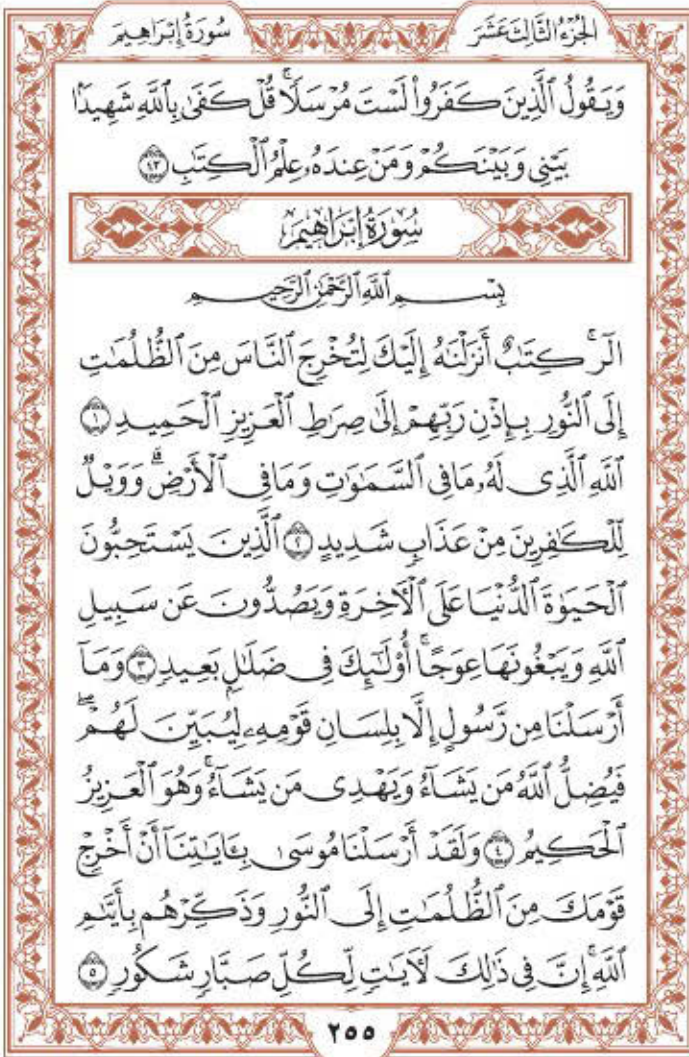 الجُزْءُ الثَّالِثَ عَشَرَ سُورَةُ إِبْرَاهِيمَ
وَيَقُولُ ٱلَّذِينَ كَفَرُوا۟ لَسْتَ مُرْسَلًاۚ قُلْ كَفَىٰ بِٱللَّهِ شَهِيدًۢا
بَيْنِى وَبَيْنَكُمْ وَمَنْ عِندَهُۥ عِلْمُ ٱلْكِتَٰبِ ٤٣
سُورَةُ إِبْرَاهِيمَ
بِسْمِ ٱللَّهِ ٱلرَّحْمَٰنِ ٱلرَّحِيمِ
الٓرۚ كِتَٰبٌ أَنزَلْنَٰهُ إِلَيْكَ لِتُخْرِجَ ٱلنَّاسَ مِنَ ٱلظُّلُمَٰتِ
إِلَى ٱلنُّورِ بِإِذْنِ رَبِّهِمْ إِلَىٰ صِرَٰطِ ٱلْعَزِيزِ ٱلْحَمِيدِ ١
ٱللَّهِ ٱلَّذِى لَهُۥ مَا فِى ٱلسَّمَٰوَٰتِ وَمَا فِى ٱلْأَرْضِۗ وَوَيْلٌ
لِّلْكَٰفِرِينَ مِنْ عَذَابٍ شَدِيدٍ ٢ ٱلَّذِينَ يَسْتَحِبُّونَ
ٱلْحَيَوٰةَ ٱلدُّنْيَا عَلَى ٱلْءَاخِرَةِ وَيَصُدُّونَ عَن سَبِيلِ
ٱللَّهِ وَيَبْغُونَهَا عِوَجًاۚ أُو۟لَٰٓئِكَ فِى ضَلَٰلٍۭ بَعِيدٍ ٣ وَمَآ
أَرْسَلْنَا مِن رَّسُولٍ إِلَّا بِلِسَانِ قَوْمِهِۦ لِيُبَيِّنَ لَهُمْۖ
فَيُضِلُّ ٱللَّهُ مَن يَشَآءُ وَيَهْدِى مَن يَشَآءُۚ وَهُوَ ٱلْعَزِيزُ
ٱلْحَكِيمُ ٤ وَلَقَدْ أَرْسَلْنَا مُوسَىٰ بِـَٔايَٰتِنَآ أَنْ أَخْرِجْ
قَوْمَكَ مِنَ ٱلظُّلُمَٰتِ إِلَى ٱلنُّورِ وَذَكِّرْهُم بِأَيَّىٰمِ
ٱللَّهِۚ إِنَّ فِى ذَٰلِكَ لَءَايَٰتٍ لِّكُلِّ صَبَّارٍ شَكُورٍ ٥
٢٥٥